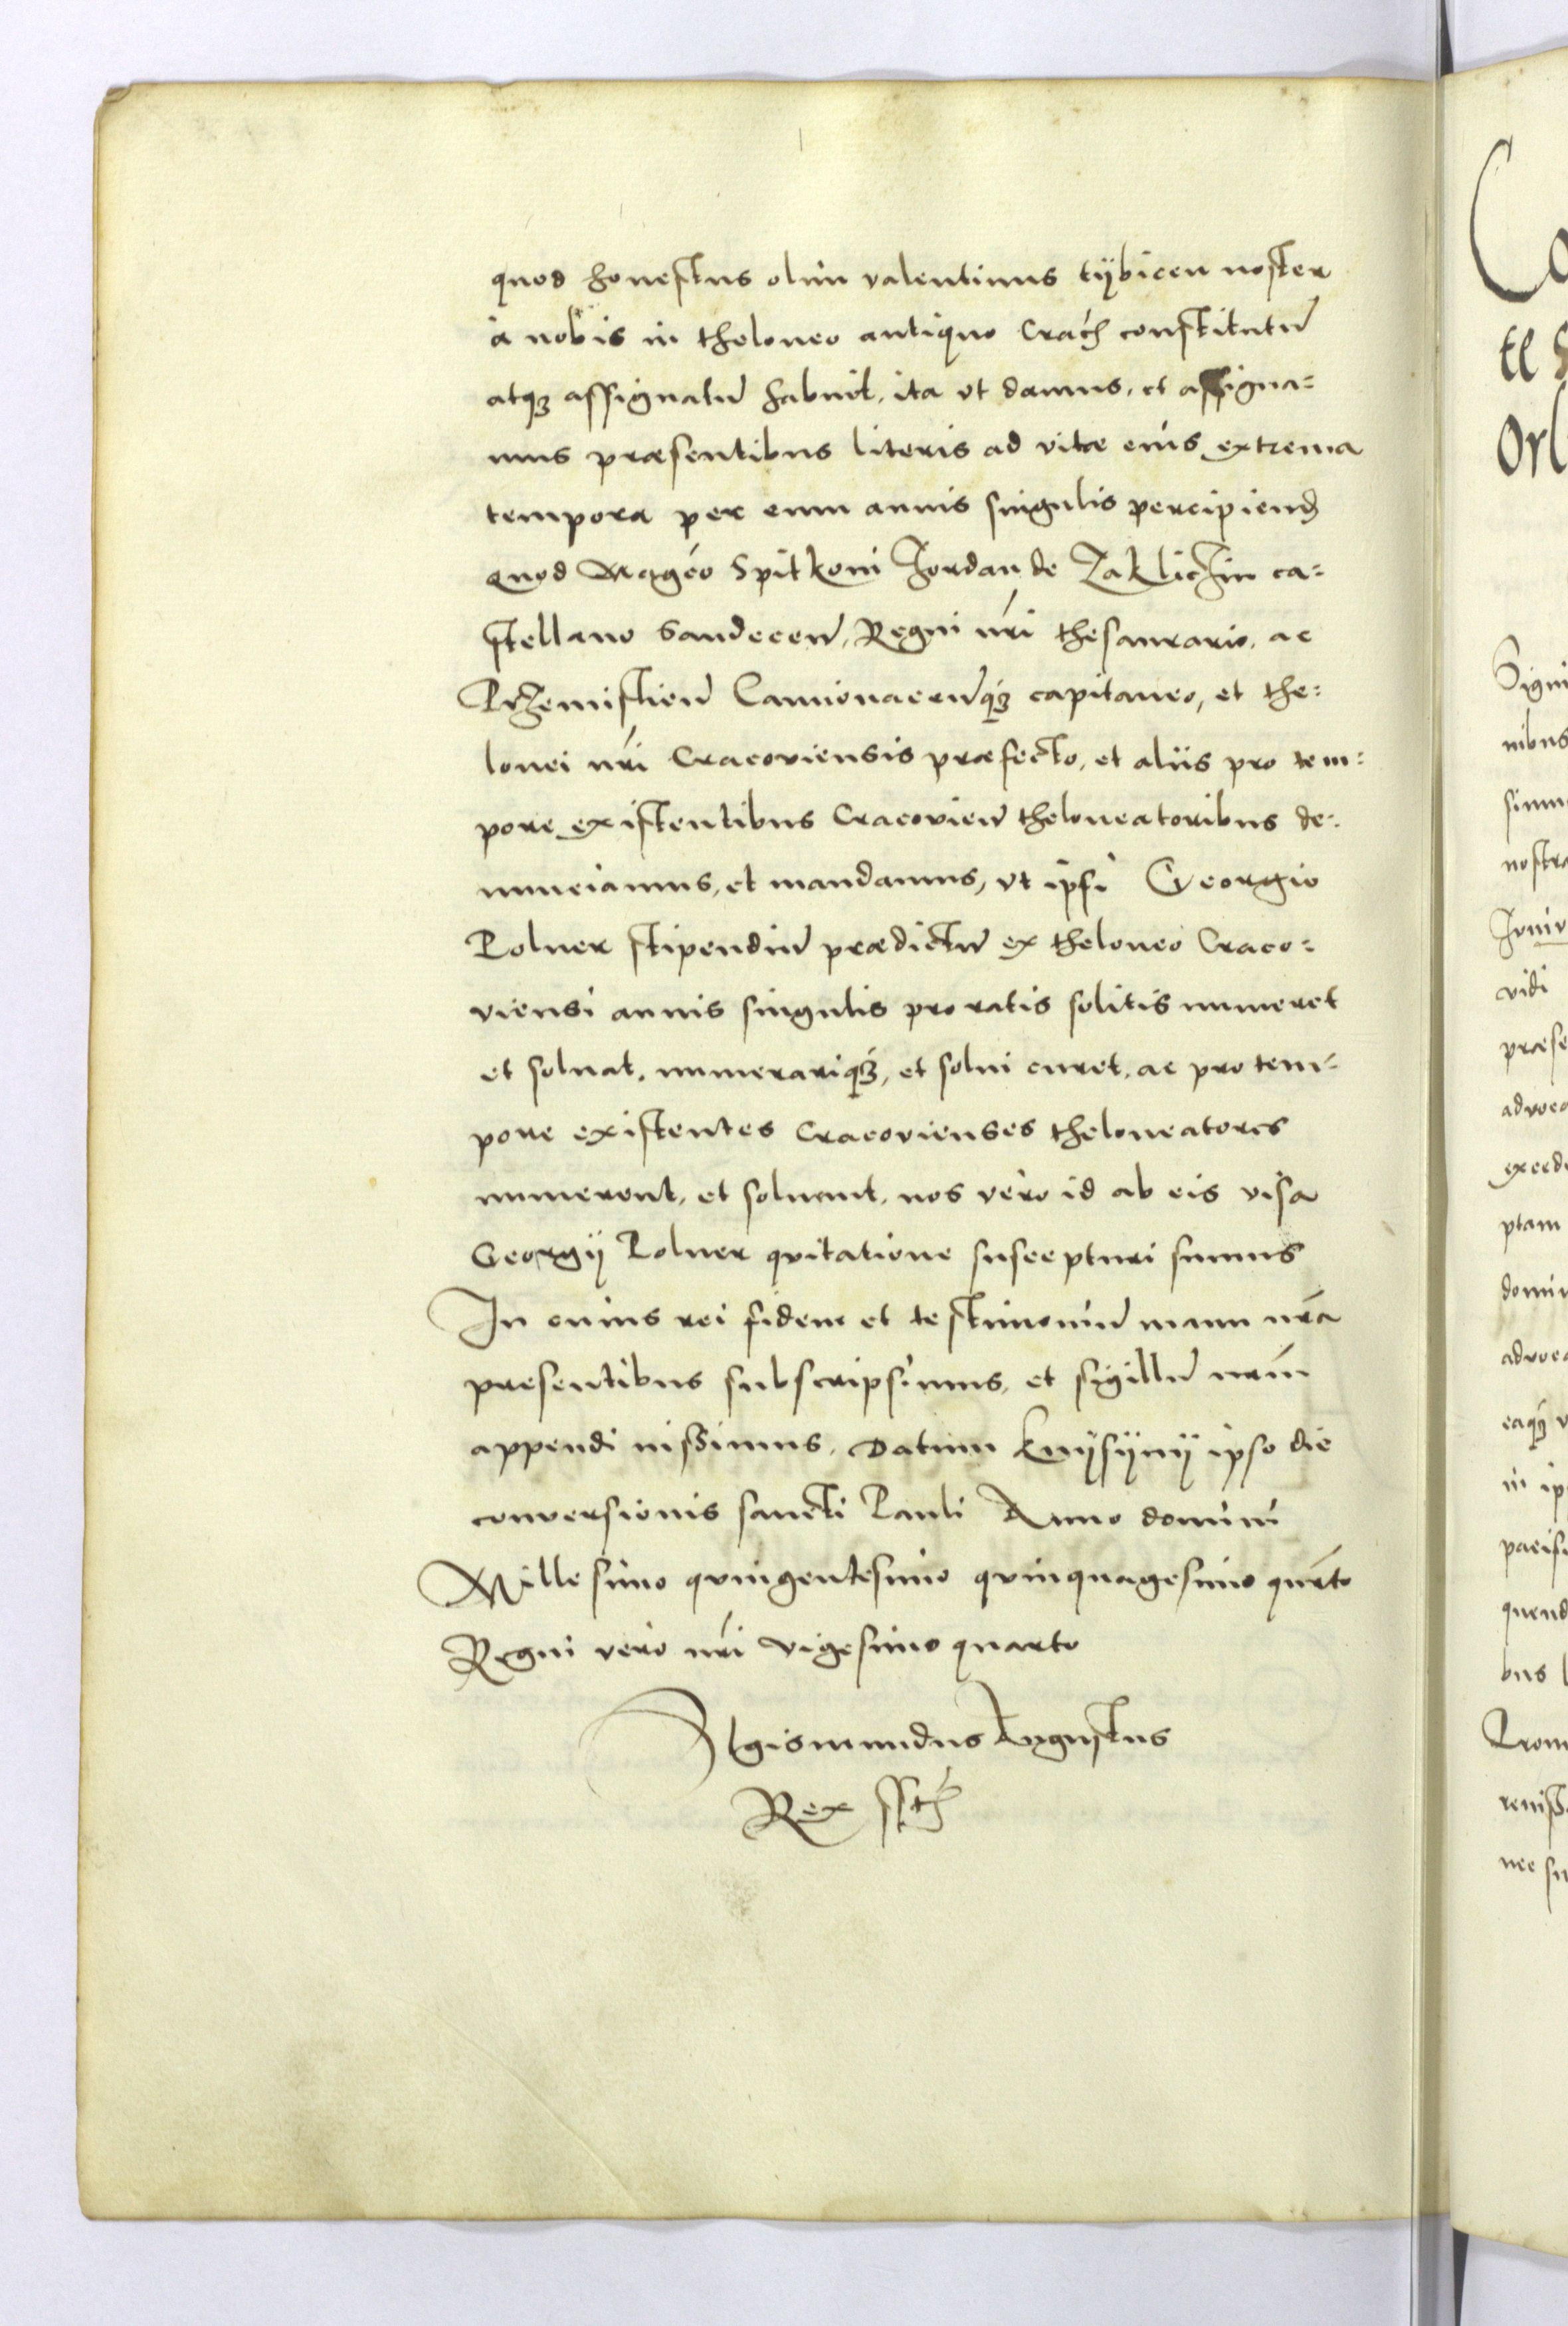 quod honestus olim valentinus tÿbicen noster
à nobis in theloneo antiquo Crach constitutũ
atqz assignatũ habuit, ita vt damus, et assigna=
mus præsentibus literis ad vitæ eius extrema
tempora per eum annis singulis percipiend
Quod Magco Spitkoni Jordan de Zaklichin ca=
stellano Sandecen, Regni nri thesaurario, ac
Przemislien Camionacenqz capitaneo, et the=
lonei nri Cracoviensis præfecto, et aliis pro tem=
pore existentibus Cracovien theloneatoribus de=
nunciamus, et mandamus, vt ipsi Georgio
Polner stipendiũ prædictũ ex theloneo Craco=
viensi annis singulis pro ratis solitis numeret
et soluat, numerariqz, et solui curet, ac pro tem=
pore existentes Cracovienses theloneatores
numerent, et soluant, nos vero id ab eis visa
Georgij Polner quitatione suscepturi sumus
In cuius rei fidem et testimoniũ manu nra
presentibus subscripsimus, et sigillũ nrm
appendi iussimus. Datum Knÿsÿnÿ ipso die
conversionis sancti Pauli Anno domini
Millesimo quingentesimo quinquagesimo quarto
Regni vero nri vigesimo quarto
Sigismundus Augustus
Rex sst
Co
te
Orl
Signi
nibus
simu
nostra
vidi
præse
advoca
excede
ptam
domin
advoca
eaqz v
in ip
pacis
quend
bus l
Prom
reniss
nec su